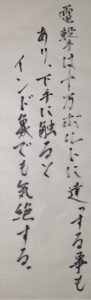 電撃は十万ボルトに達っする事も
あり、下手に触ると
インド象でも気絶する。